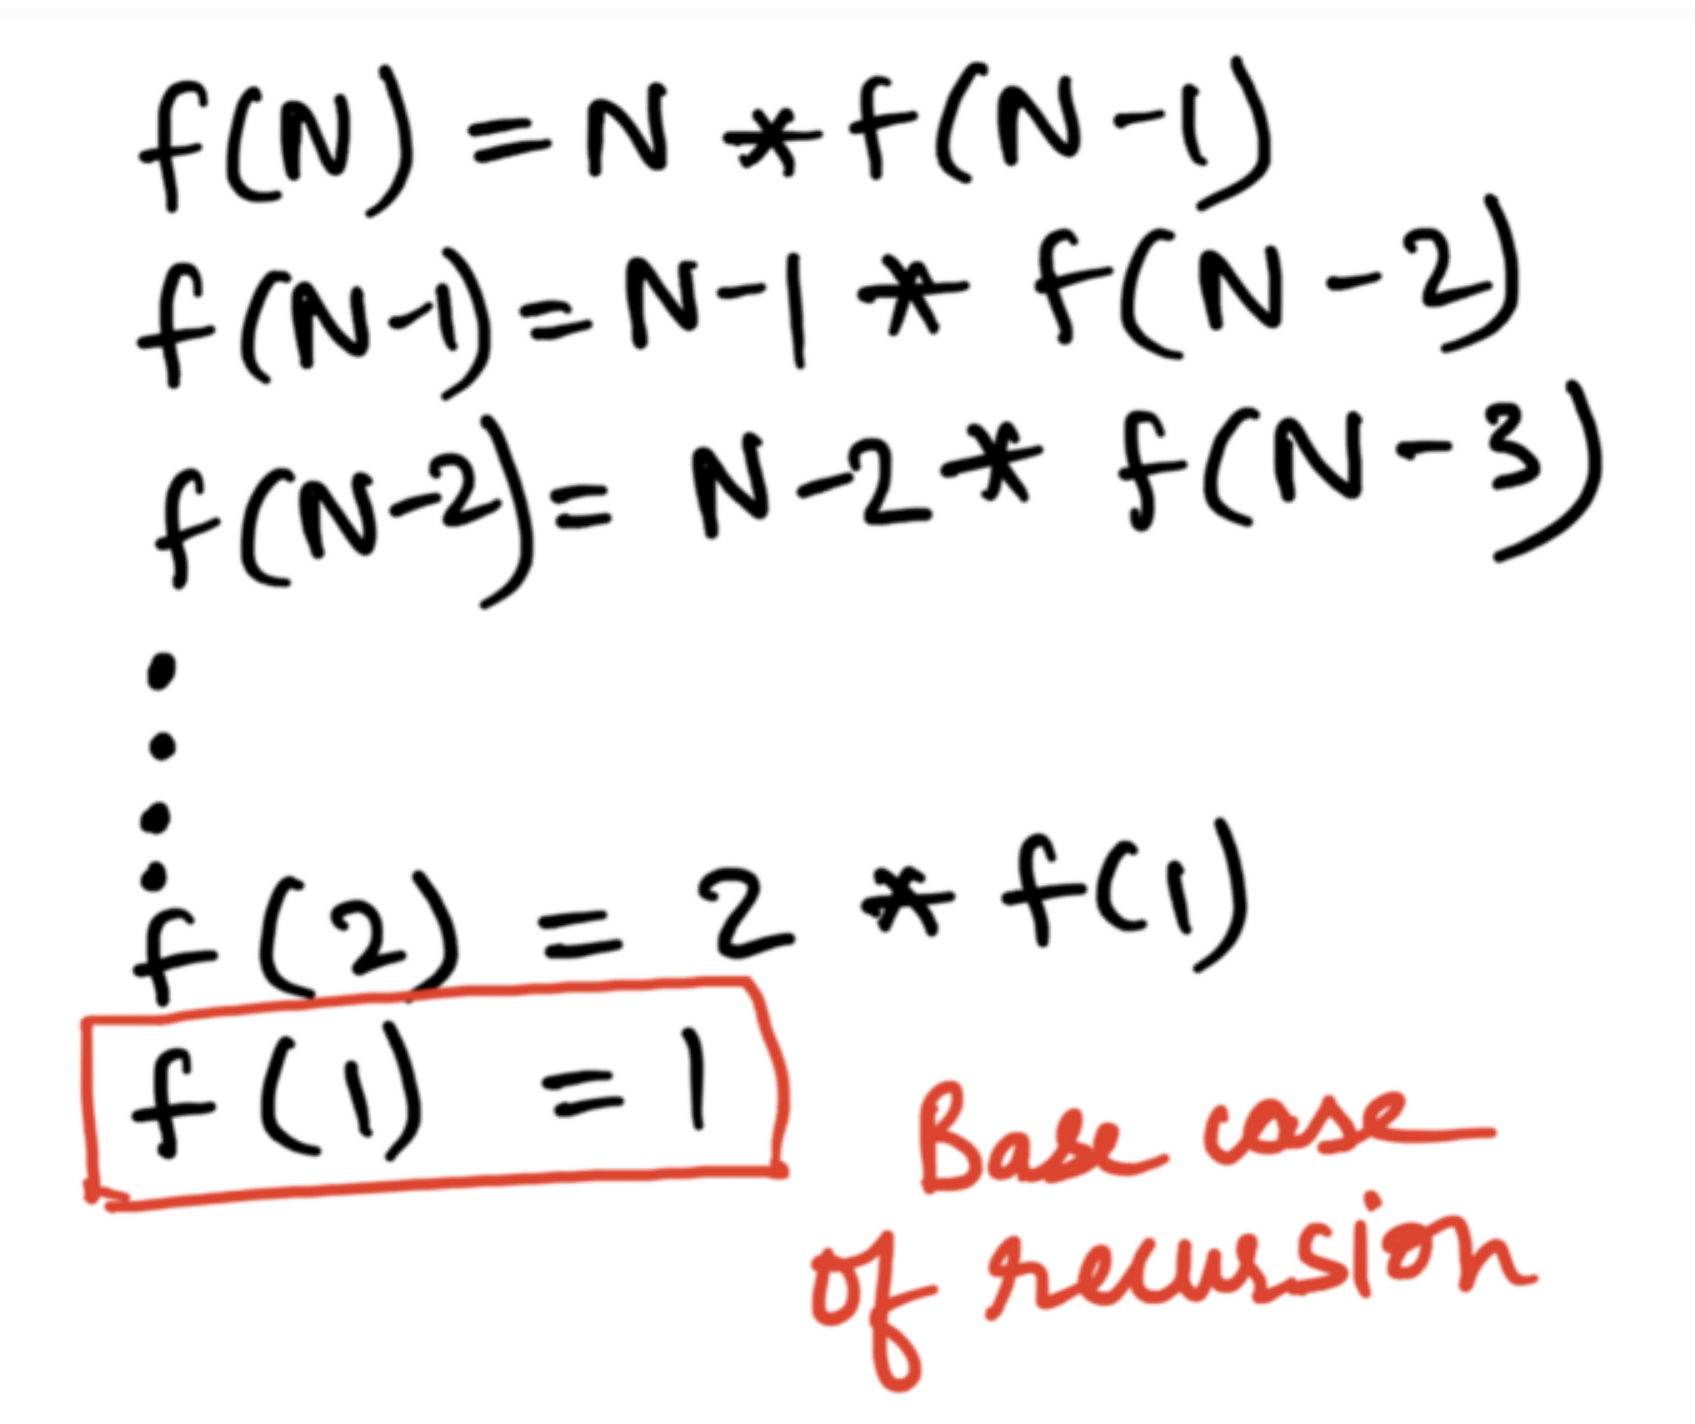 f(N) = N * f(N-1)
f(N-1) = N-1 * f(N-2)
f(N-2) = N-2 * f(N-3)
.
.
.
.
f(2) = 2 * f(1)
f(1) = 1
Base case
of recursion